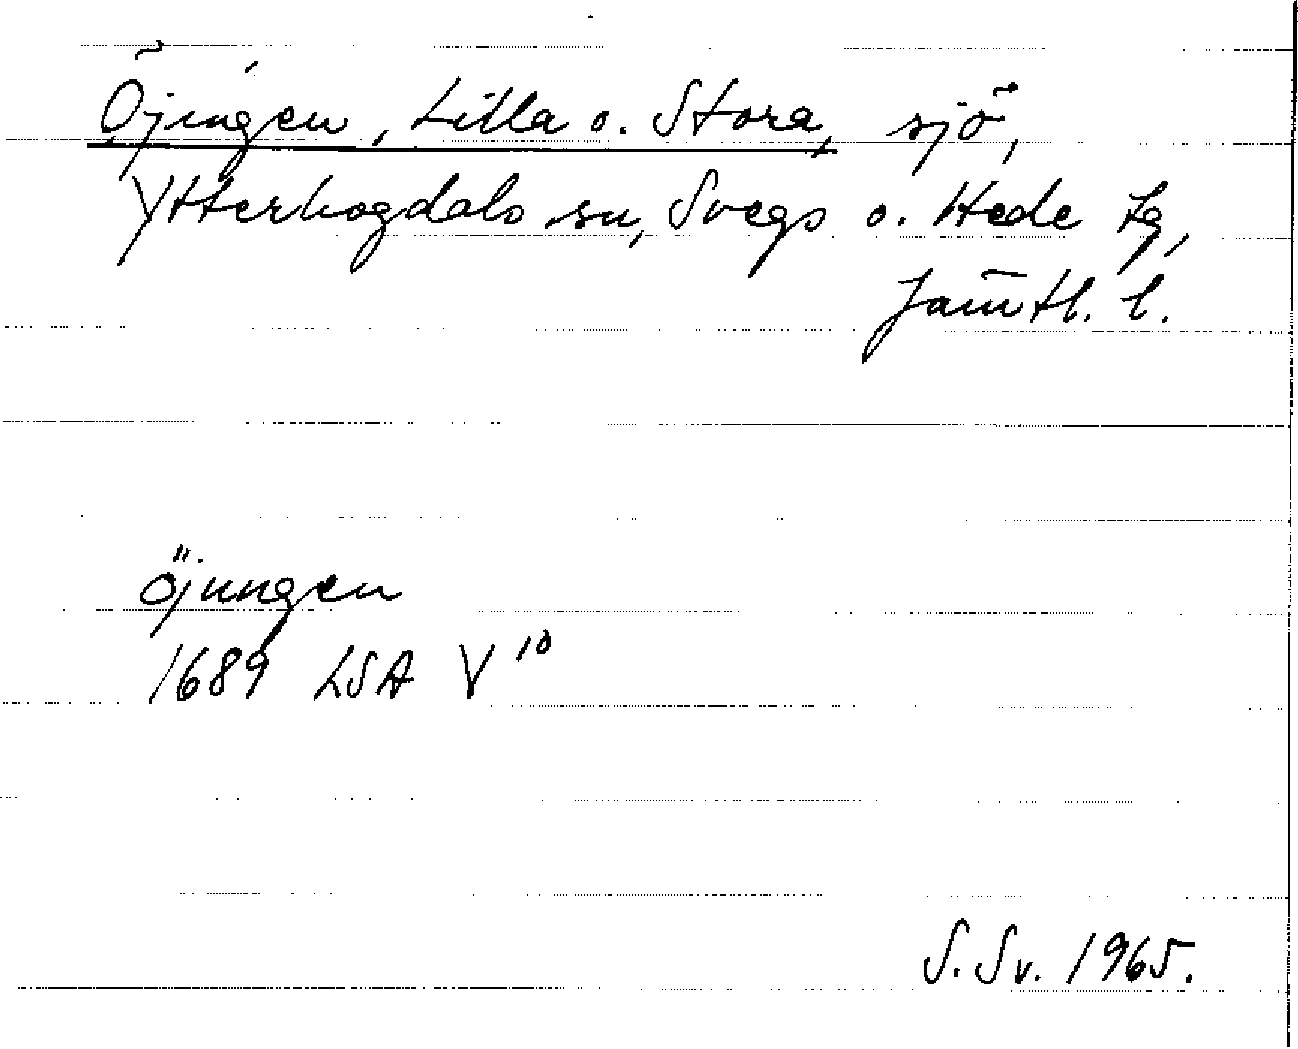 Öjingen, Lilla o. Stora, sjö,
Ytterhogdals sn, Svegs o. Hede tg,
Jämtl. l.
Öjungen
1689 LSA V¹⁰
S. Sv. 1965.